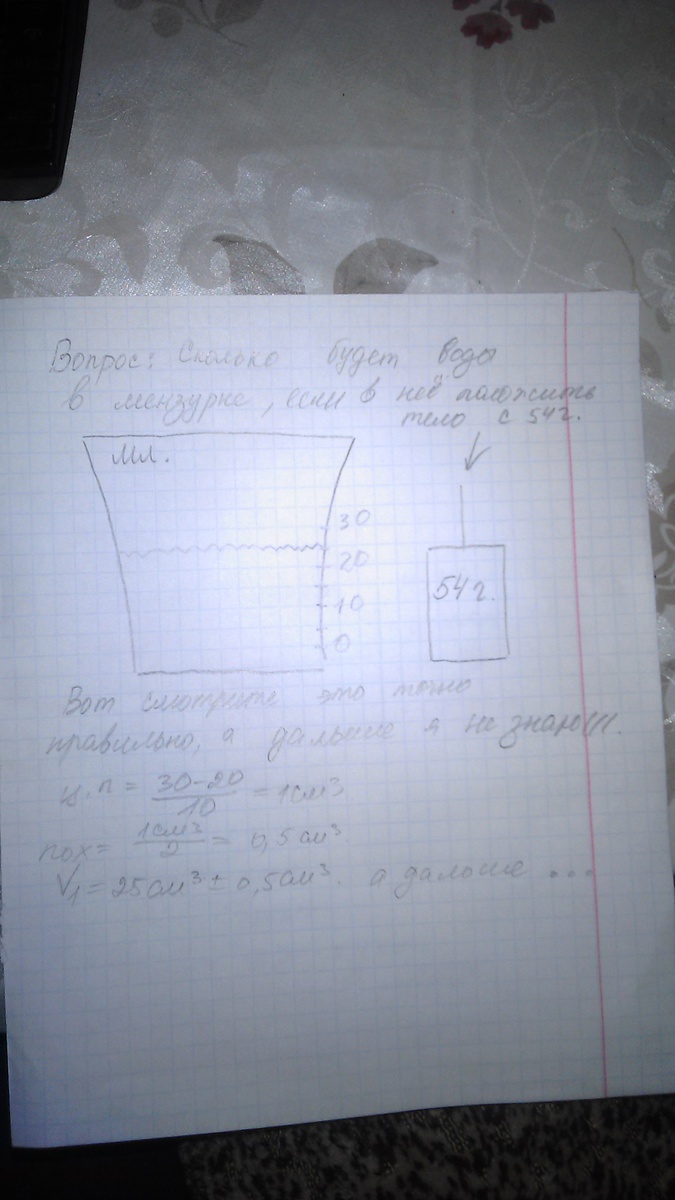 Вопрос: Сколько будет воды
в мензурке, если в неё положить
тело с 54г.
мл.
30
20
10
0
54 г.
Вот смотрите это точно
правильно, а дальше я не знаю!!!.
ц.п = 30-20/10 = 1см³
пох = 1см³/2 = 0,5 см³
V₁ = 25см³ ± 0,5см³. а дальше ...